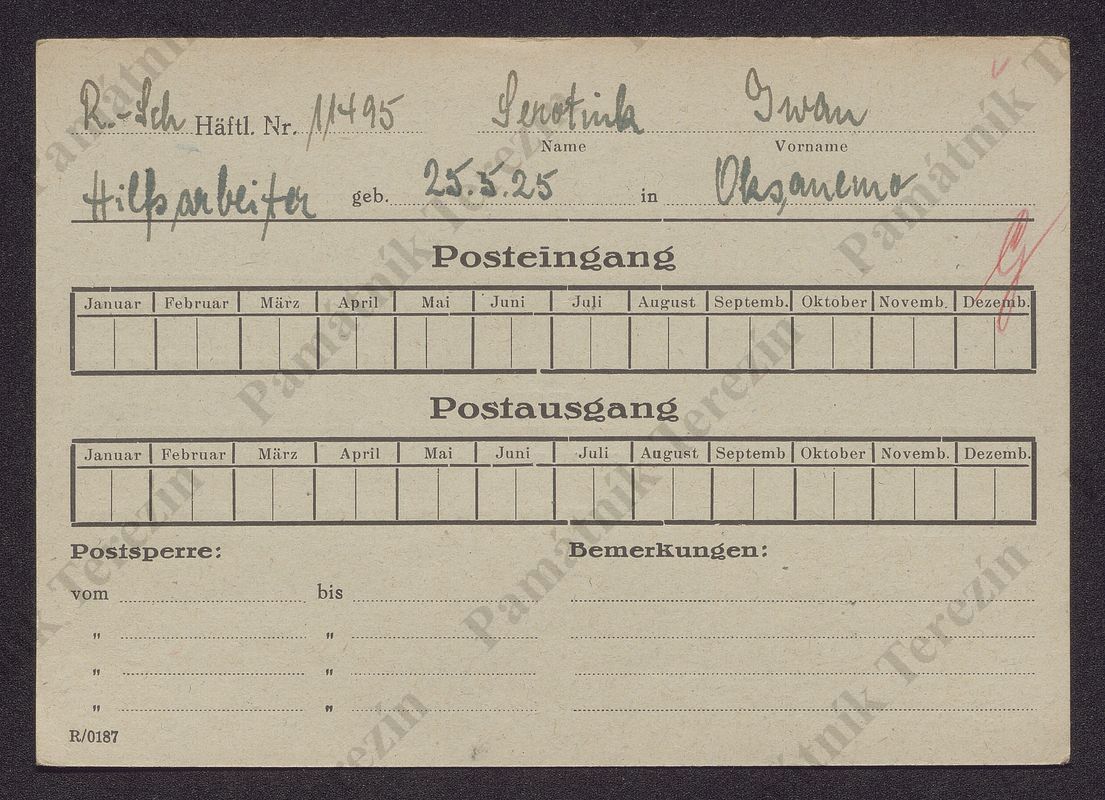 R.-Sch Häftl. Nr. 11495 Serotink Iwan
Name Vorname
Hilfsarbeiter geb. 25.5.25 in Oksanemo
Posteingang
Januar Februar März April Mai Juni Juli August Septemb. Oktober Novemb. Dezemb.
Postausgang
Januar Februar März April Mai Juni Juli August Septemb Oktober Novemb. Dezemb.
Postsperre: Bemerkungen:
vom bis
" "
" "
" "
R/0187
Památník Terezín